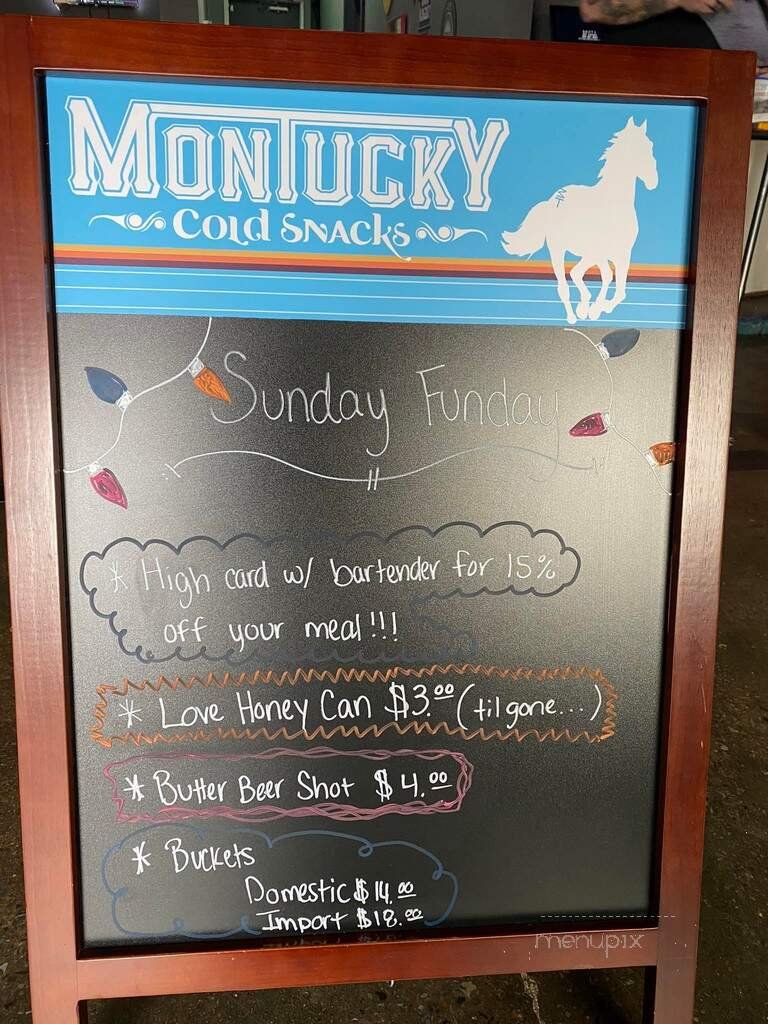 MONTUCKY
COLD SNACKS
Sunday Funday
* High card w/ bartender for 15%
off your meal!!!
* Love Honey Can $3.00 (til gone...)
* Butter Beer Shot $4.00
* Buckets
Domestic $14.00
Import $18.00
menupix